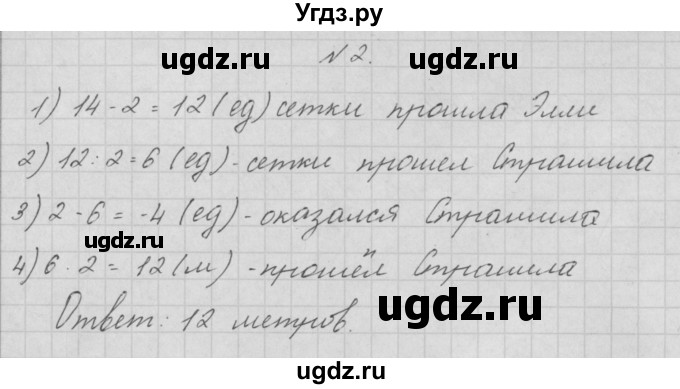 Угдз.ру
ugdz.ru ugdz.ru
№ 2.
1) 14 - 2 = 12 (ед) сетки прошла Элли
ugdz.ru ugdz.ru
2) 12 : 2 = 6 (ед) - сетки прошел Страшила
3) 2 - 6 = -4 (ед) - оказался Страшила
ugdz.ru ugdz.ru
4) 6 · 2 = 12 (м) - прошёл Страшила
Ответ: 12 метров.
ugdz.ru
ugdz.ru